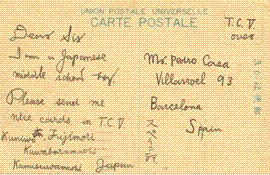 UNION POSTALE UNIVERSELLE
CARTE POSTALE
T.C.V
over
Dear Sir
I am a Japanese
middle school boy.
Please send me
nice cards in T.C.V.
Kuniwo Fujimori
Kuwabaramachi
Kamisuwamachi Japan
Mr. Pedro Casa
Villarroel 93
Barcelona
Spain